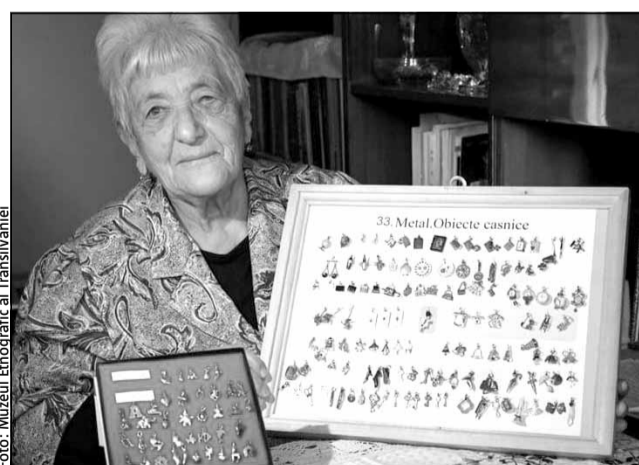 33. Metal.Obiecte casnice
Foto: Muzeul Etnografic al Transilvaniei